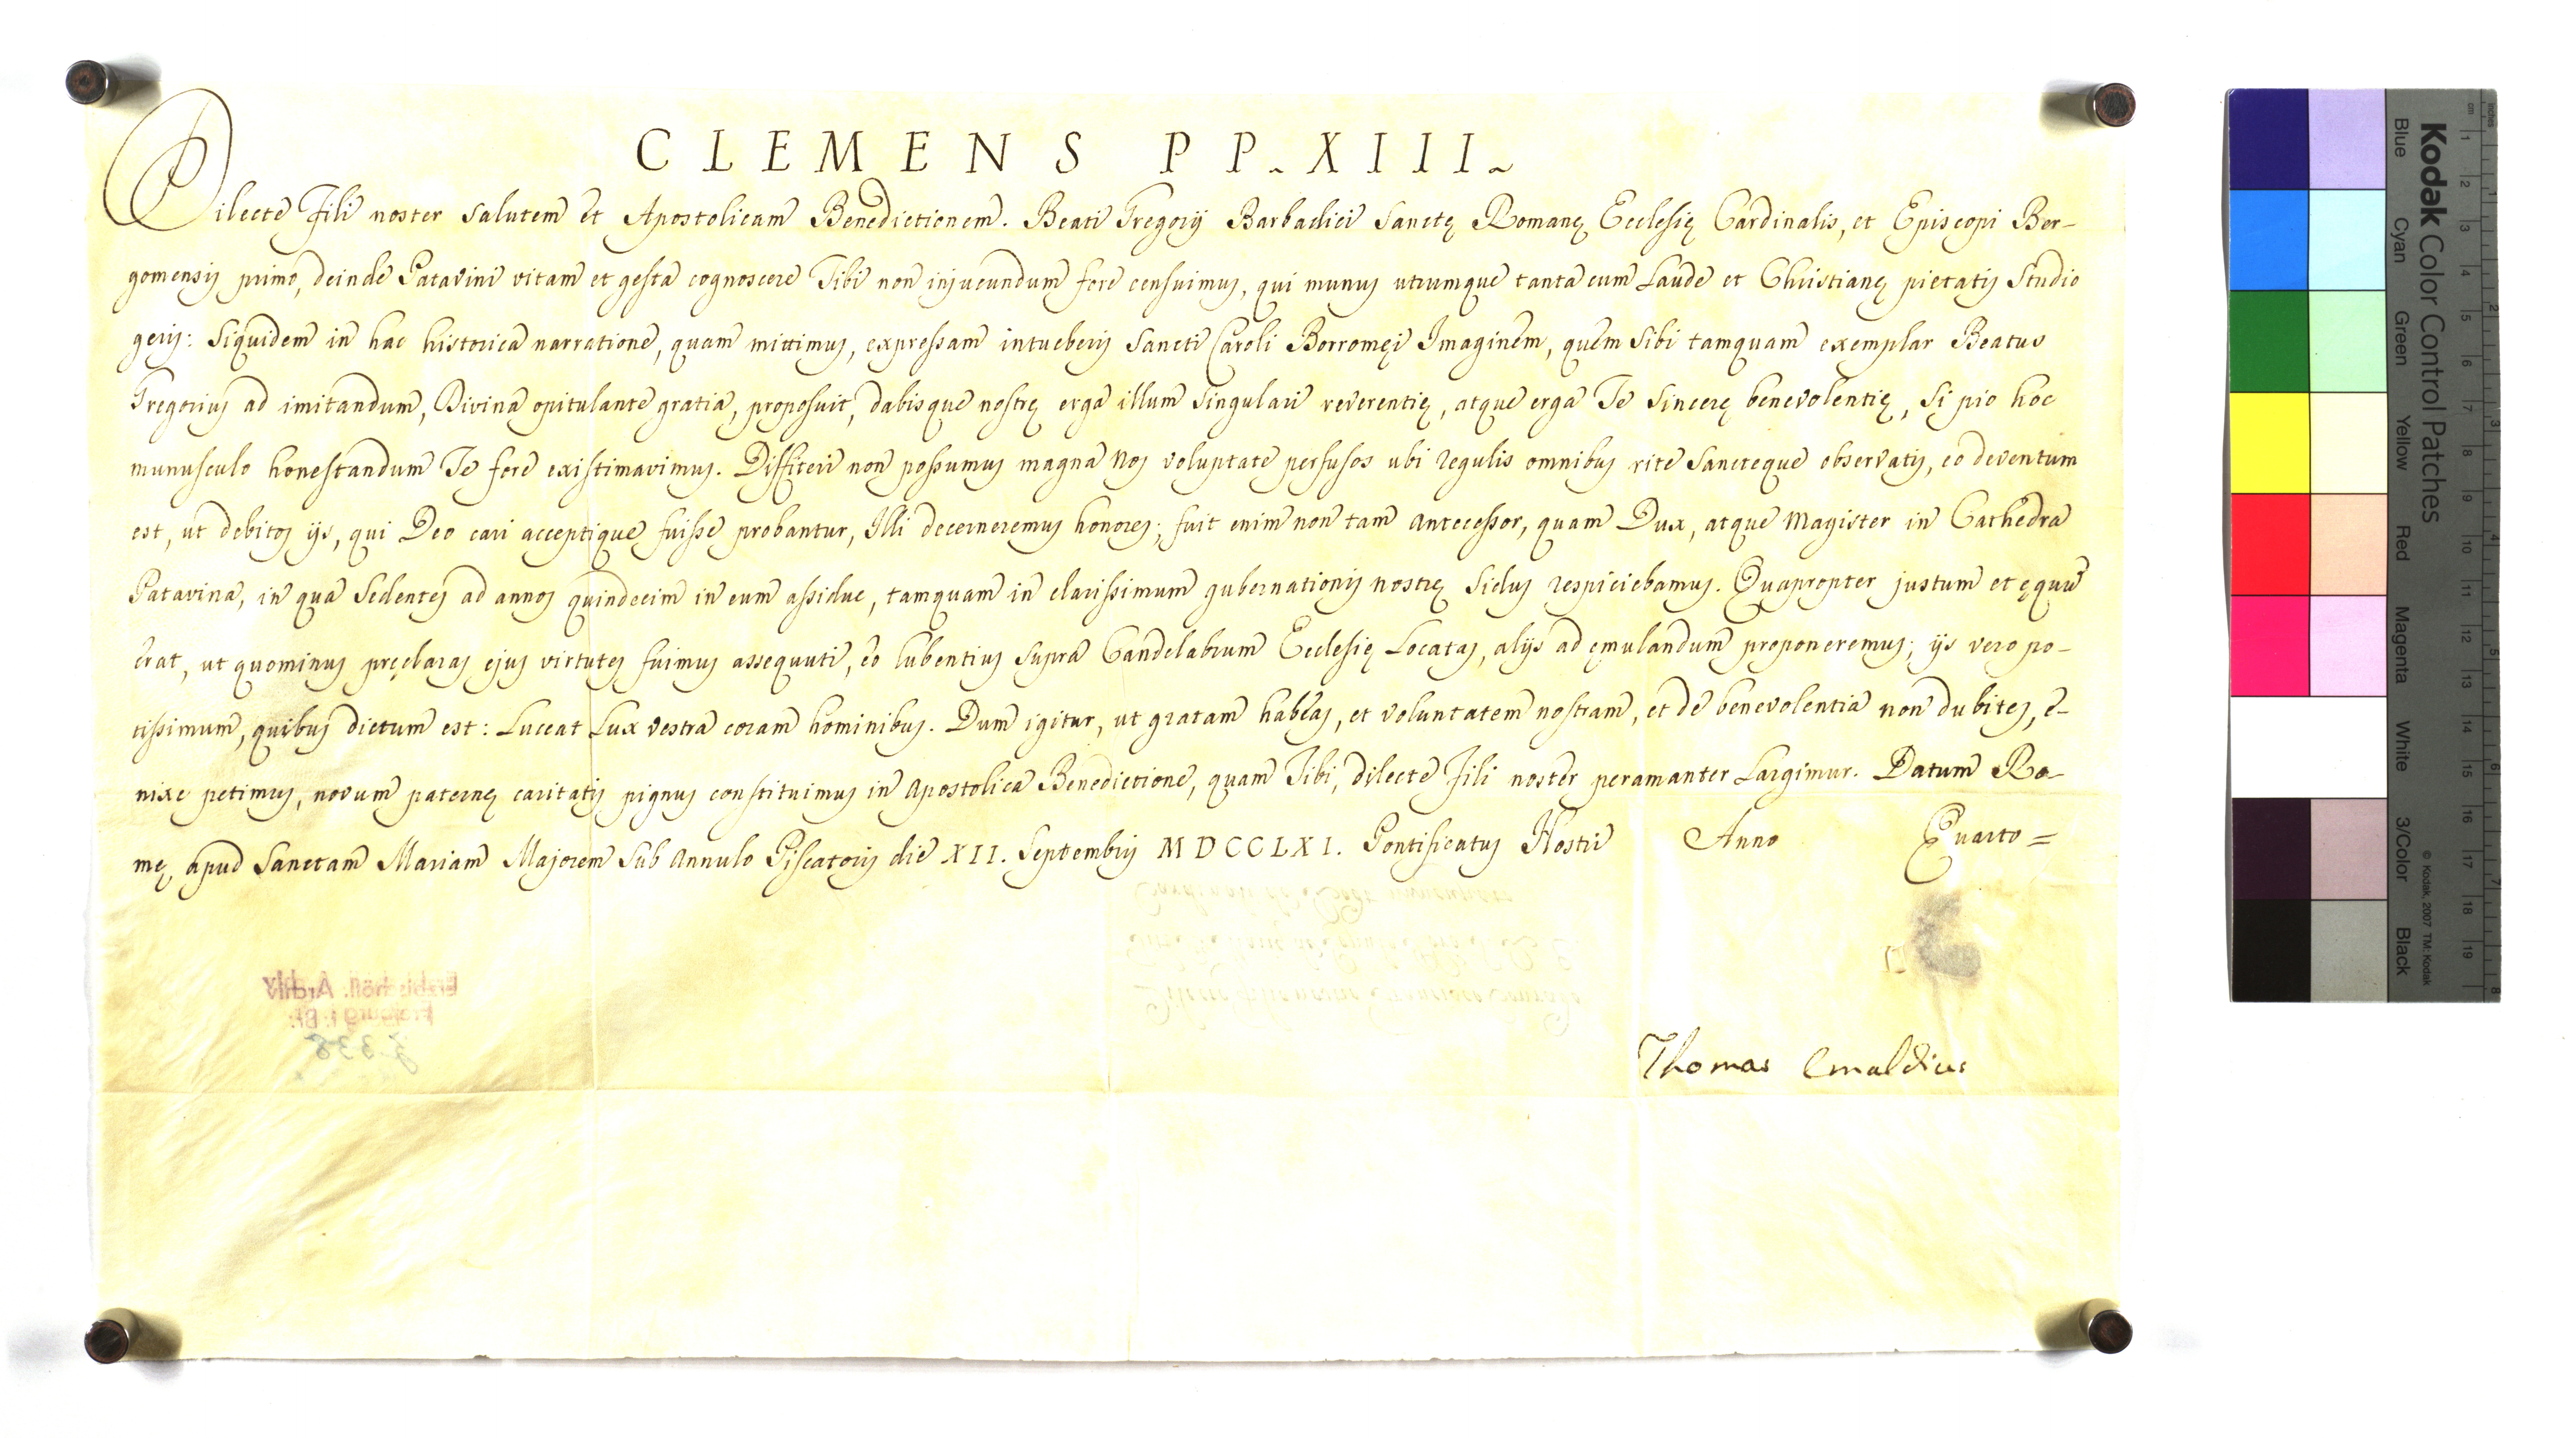 CLEMENS PP. XIII.
Dilecte Fili noster salutem et Apostolicam Benedictionem. Beati Gregorij Barbadici Sanctę Romanę Ecclesię Cardinalis, et Episcopi Ber-
gomensis primo, deinde Patavini vitam et gesta cognoscere Tibi non injucundum fore censuimus, qui munus utrumque tanta cum Laude et Christianę pietatis Studio
geris: Siquidem in hac historica narratione, quam mittimus, expressam intueberis Sancti Caroli Borromęi Imaginem, quem Sibi tamquam exemplar Beatus
Gregorius ad imitandum, Divina opitulante gratia, proposuit, dabisque nostrę erga illum Singulari reverentię, atque erga Te Sincerę benevolentię, Si pio hoc
munusculo honestandum Te fore existimavimus. Diffiteri non possumus magna Nos voluptate perfusos ubi regulis omnibus rite Sancteque observatis, eo deventum
est, ut debitos ijs, qui Deo cari acceptique fuisse probantur, Illi decerneremus honores; fuit enim non tam Antecessor, quam Dux, atque Magister in Cathedra
Patavina, in qua Sedentes ad annos quindecim in eum assidue, tamquam in clarissimum gubernationis nostrę Sidus respiciebamus. Quapropter justum et ęquũ
erat, ut quominus pręclaras ejus virtutes fuimus assequuti, eo lubentius supra Candelabrum Ecclesię Locatas, alijs ad ęmulandum proponeremus; ijs vero po-
tissimum, quibus dictum est: Luceat Lux vestra coram hominibus. Dum igitur, ut gratam habeas, et voluntatem nostram, et de benevolentia non dubites, e-
nixe petimus, novum paternę caritatis pignus constituimus in Apostolica Benedictione, quam Tibi, dilecte Fili noster peramanter Largimur. Datum Ro-
mę, apud Sanctam Mariam Majorem Sub Annulo Piscatoris die XII. Septembris MDCCLXI. Pontificatus Nostri Anno Quarto =
Erzbischöfl. Archiv
Freiburg i. Br.
J. 338
Thomas Emaldius
Kodak Color Control Patches
Blue Cyan Green Yellow Red Magenta White 3/Color Black
© Kodak, 2007 TM: Kodak
cm 1 2 3 4 5 6 7 8 9 10 11 12 13 14 15 16 17 18 19
inches 1 2 3 4 5 6 7 8